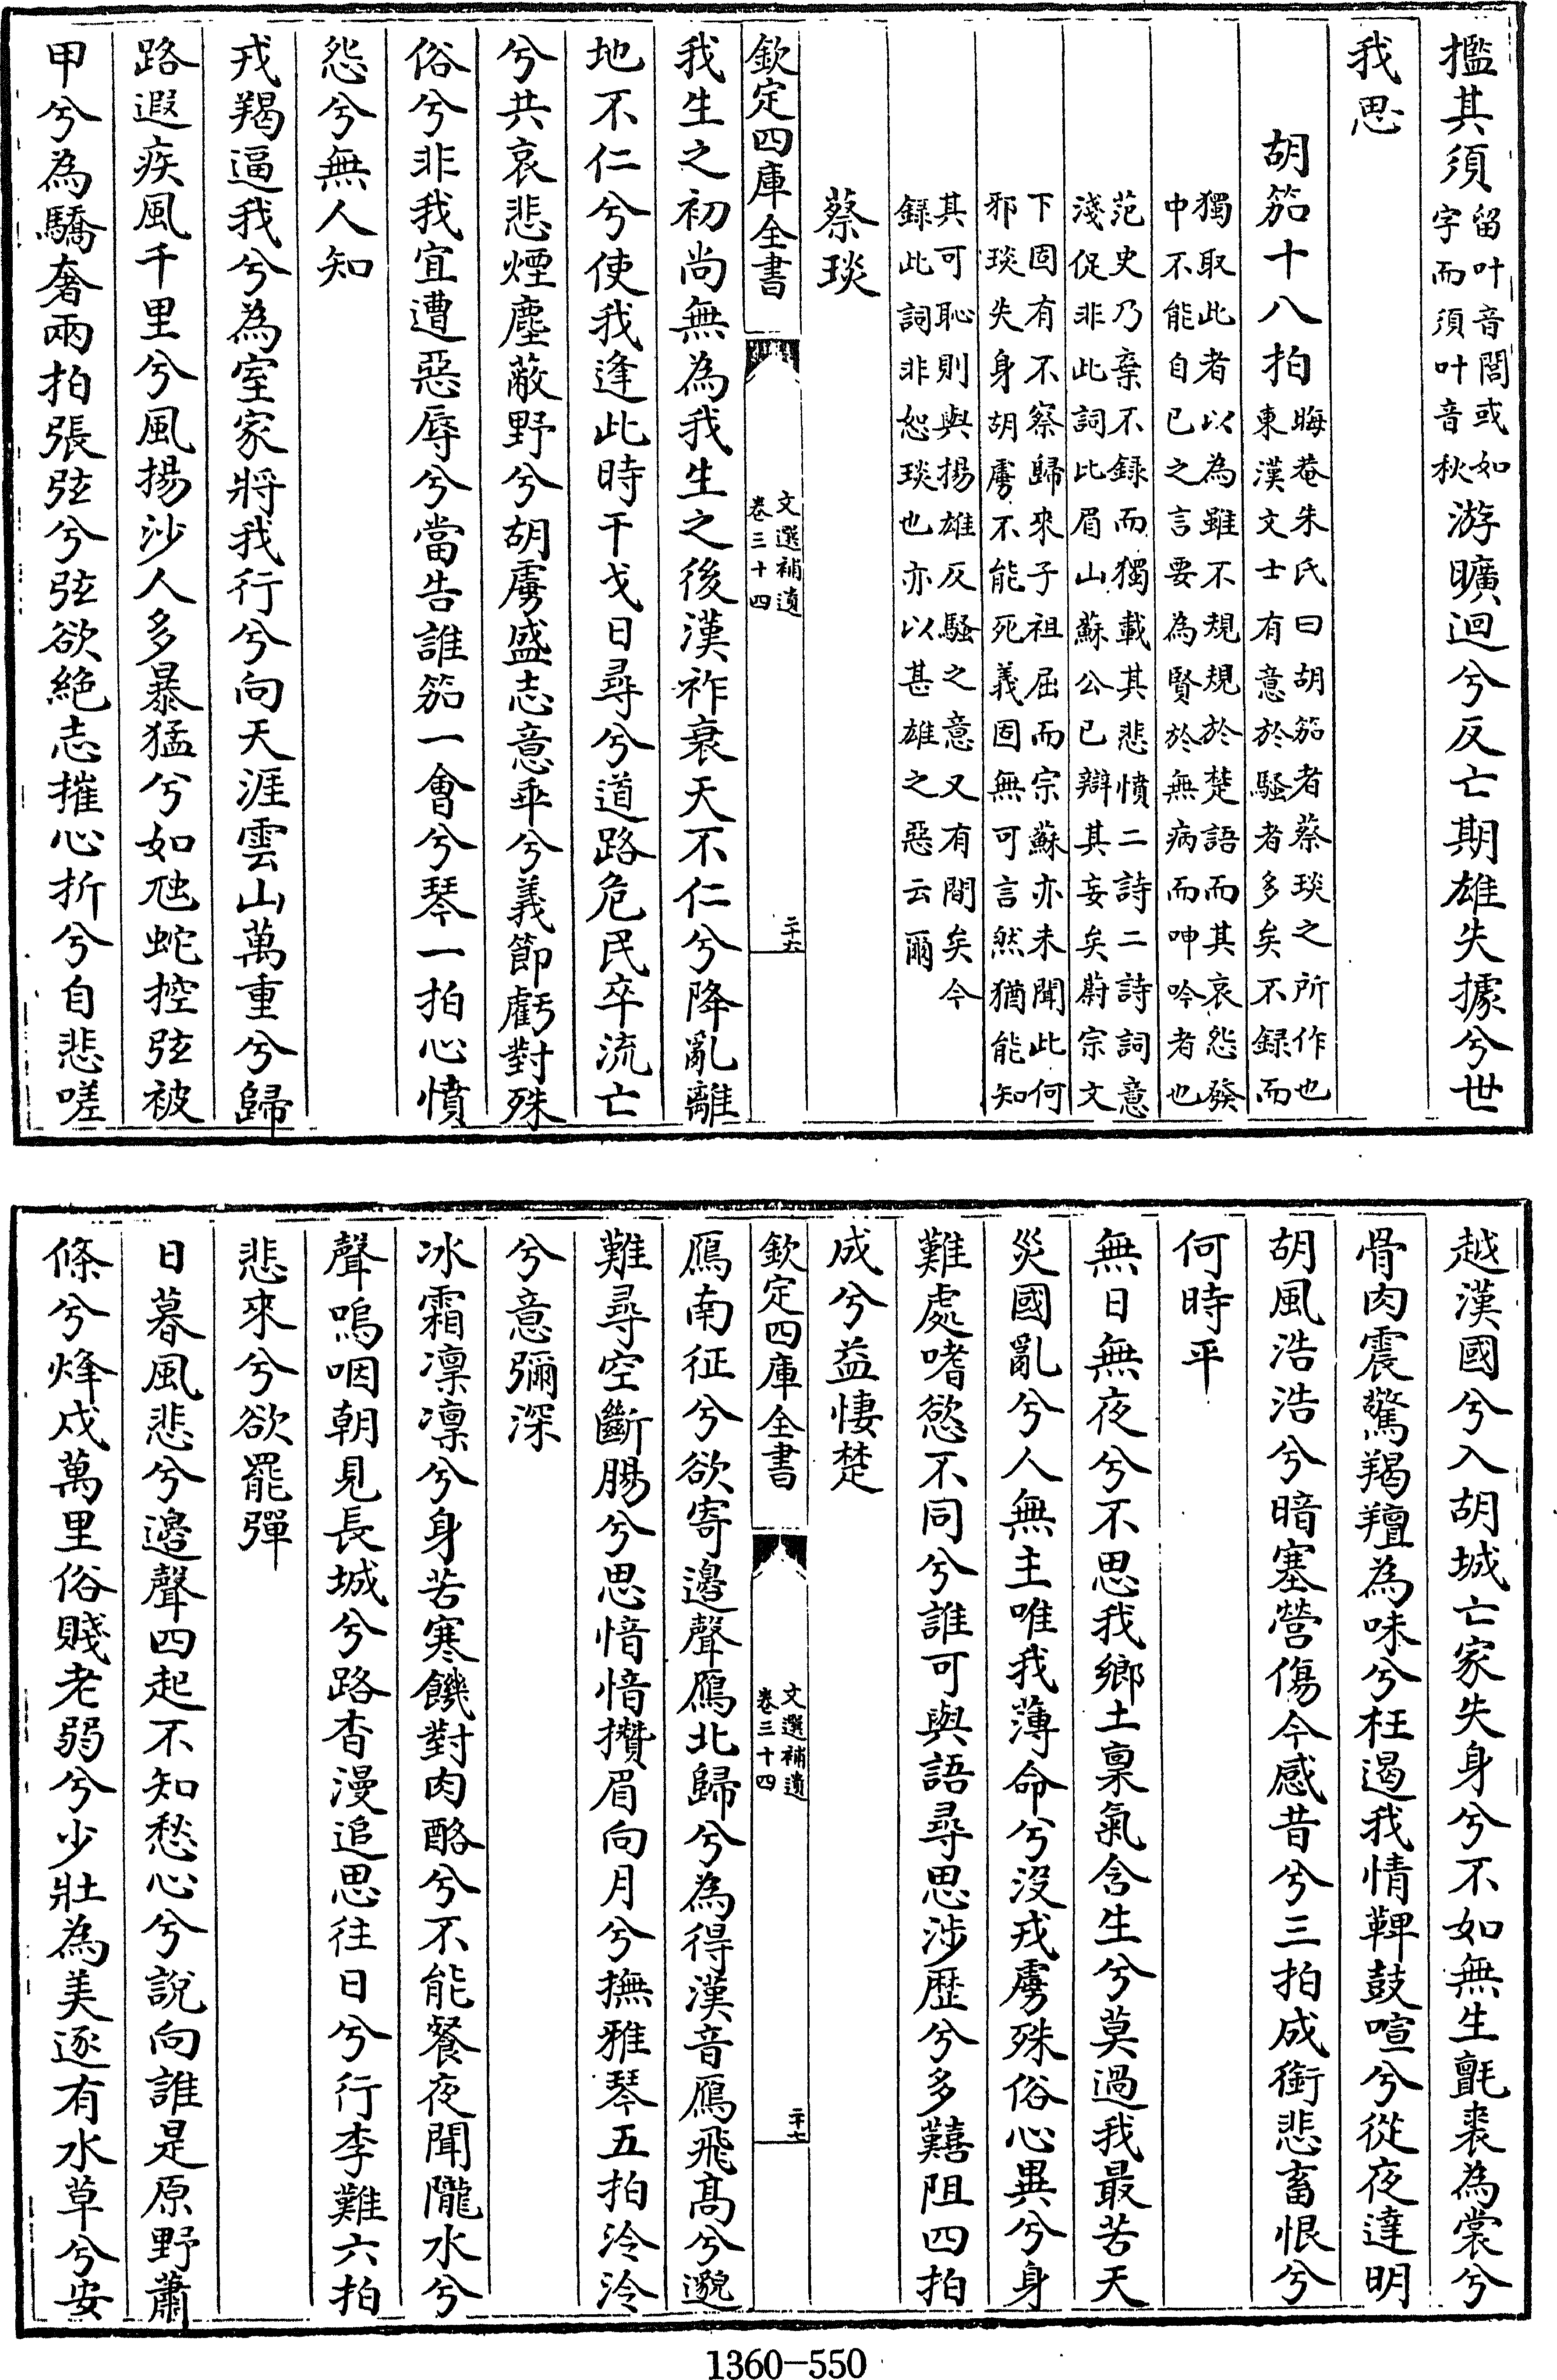 揽其須留叶音閭或如
字而須叶音秋游曠迴兮反亡期雄失據兮世
我思
胡笳十八拍晦菴朱氏曰胡笳者蔡琰之所作也
東漢文士有意於騷者多矣不録而
獨取此者以為雖不規規於楚語而其哀怨發
中不能自已之言要為賢於無病而呻吟者也
范史乃棄不録而獨載其悲憤二詩二詩詞意
淺促非此詞比眉山蘇公已辯其妄矣蔚宗文
下固有不察歸來子祖屈而宗蘇亦未聞此何
邪琰失身胡虜不能死義固無可言然猶能知
其可恥則與揚雄反騷之意又有間矣今
録此詞非恕琰也亦以甚雄之惡云爾
蔡琰
欽定四庫全書
文選補遺
卷三十四
二十六
我生之初尚無為我生之後漢祚衰天不仁兮降亂離
地不仁兮使我逢此時干戈日尋兮道路危民卒流亡
兮共哀悲煙塵蔽野兮胡虜盛志意乖兮義節虧對殊
俗兮非我宜遭惡辱兮當告誰笳一會兮琴一拍心憤
怨兮無人知
戎羯逼我兮為室家將我行兮向天涯雲山萬重兮歸
路遐疾風千里兮風揚沙人多暴猛兮如虺蛇控弦被
甲兮為驕奢兩拍張弦兮弦欲絶志摧心折兮自悲嗟
越漢國兮入胡城亡家失身兮不如無生氈裘為裳兮
骨肉震驚羯羶為味兮枉遏我情鞞鼓喧兮從夜達明
胡風浩浩兮暗塞營傷今感昔兮三拍成銜悲畜恨兮
何時平
無日無夜兮不思我鄉土稟氣含生兮莫過我最苦天
災國亂兮人無主唯我薄命兮没戎虜殊俗心異兮身
難處嗜慾不同兮誰可與語尋思涉歴兮多囏阻四拍
成兮益悽楚
欽定四庫全書
文選補遺
卷三十四
二十七
鴈南征兮欲寄邉聲鴈北歸兮為得漢音鴈飛髙兮邈
難尋空斷腸兮思愔愔攢眉向月兮撫雅琴五拍泠泠
兮意彌深
冰霜凛凛兮身苦寒饑對肉酪兮不能餐夜聞隴水兮
聲嗚咽朝見長城兮路杳漫追思往日兮行李難六拍
悲來兮欲罷彈
日暮風悲兮邉聲四起不知愁心兮說向誰是原野蕭
條兮烽戍萬里俗賤老弱兮少壯為美逐有水草兮安
1360-550